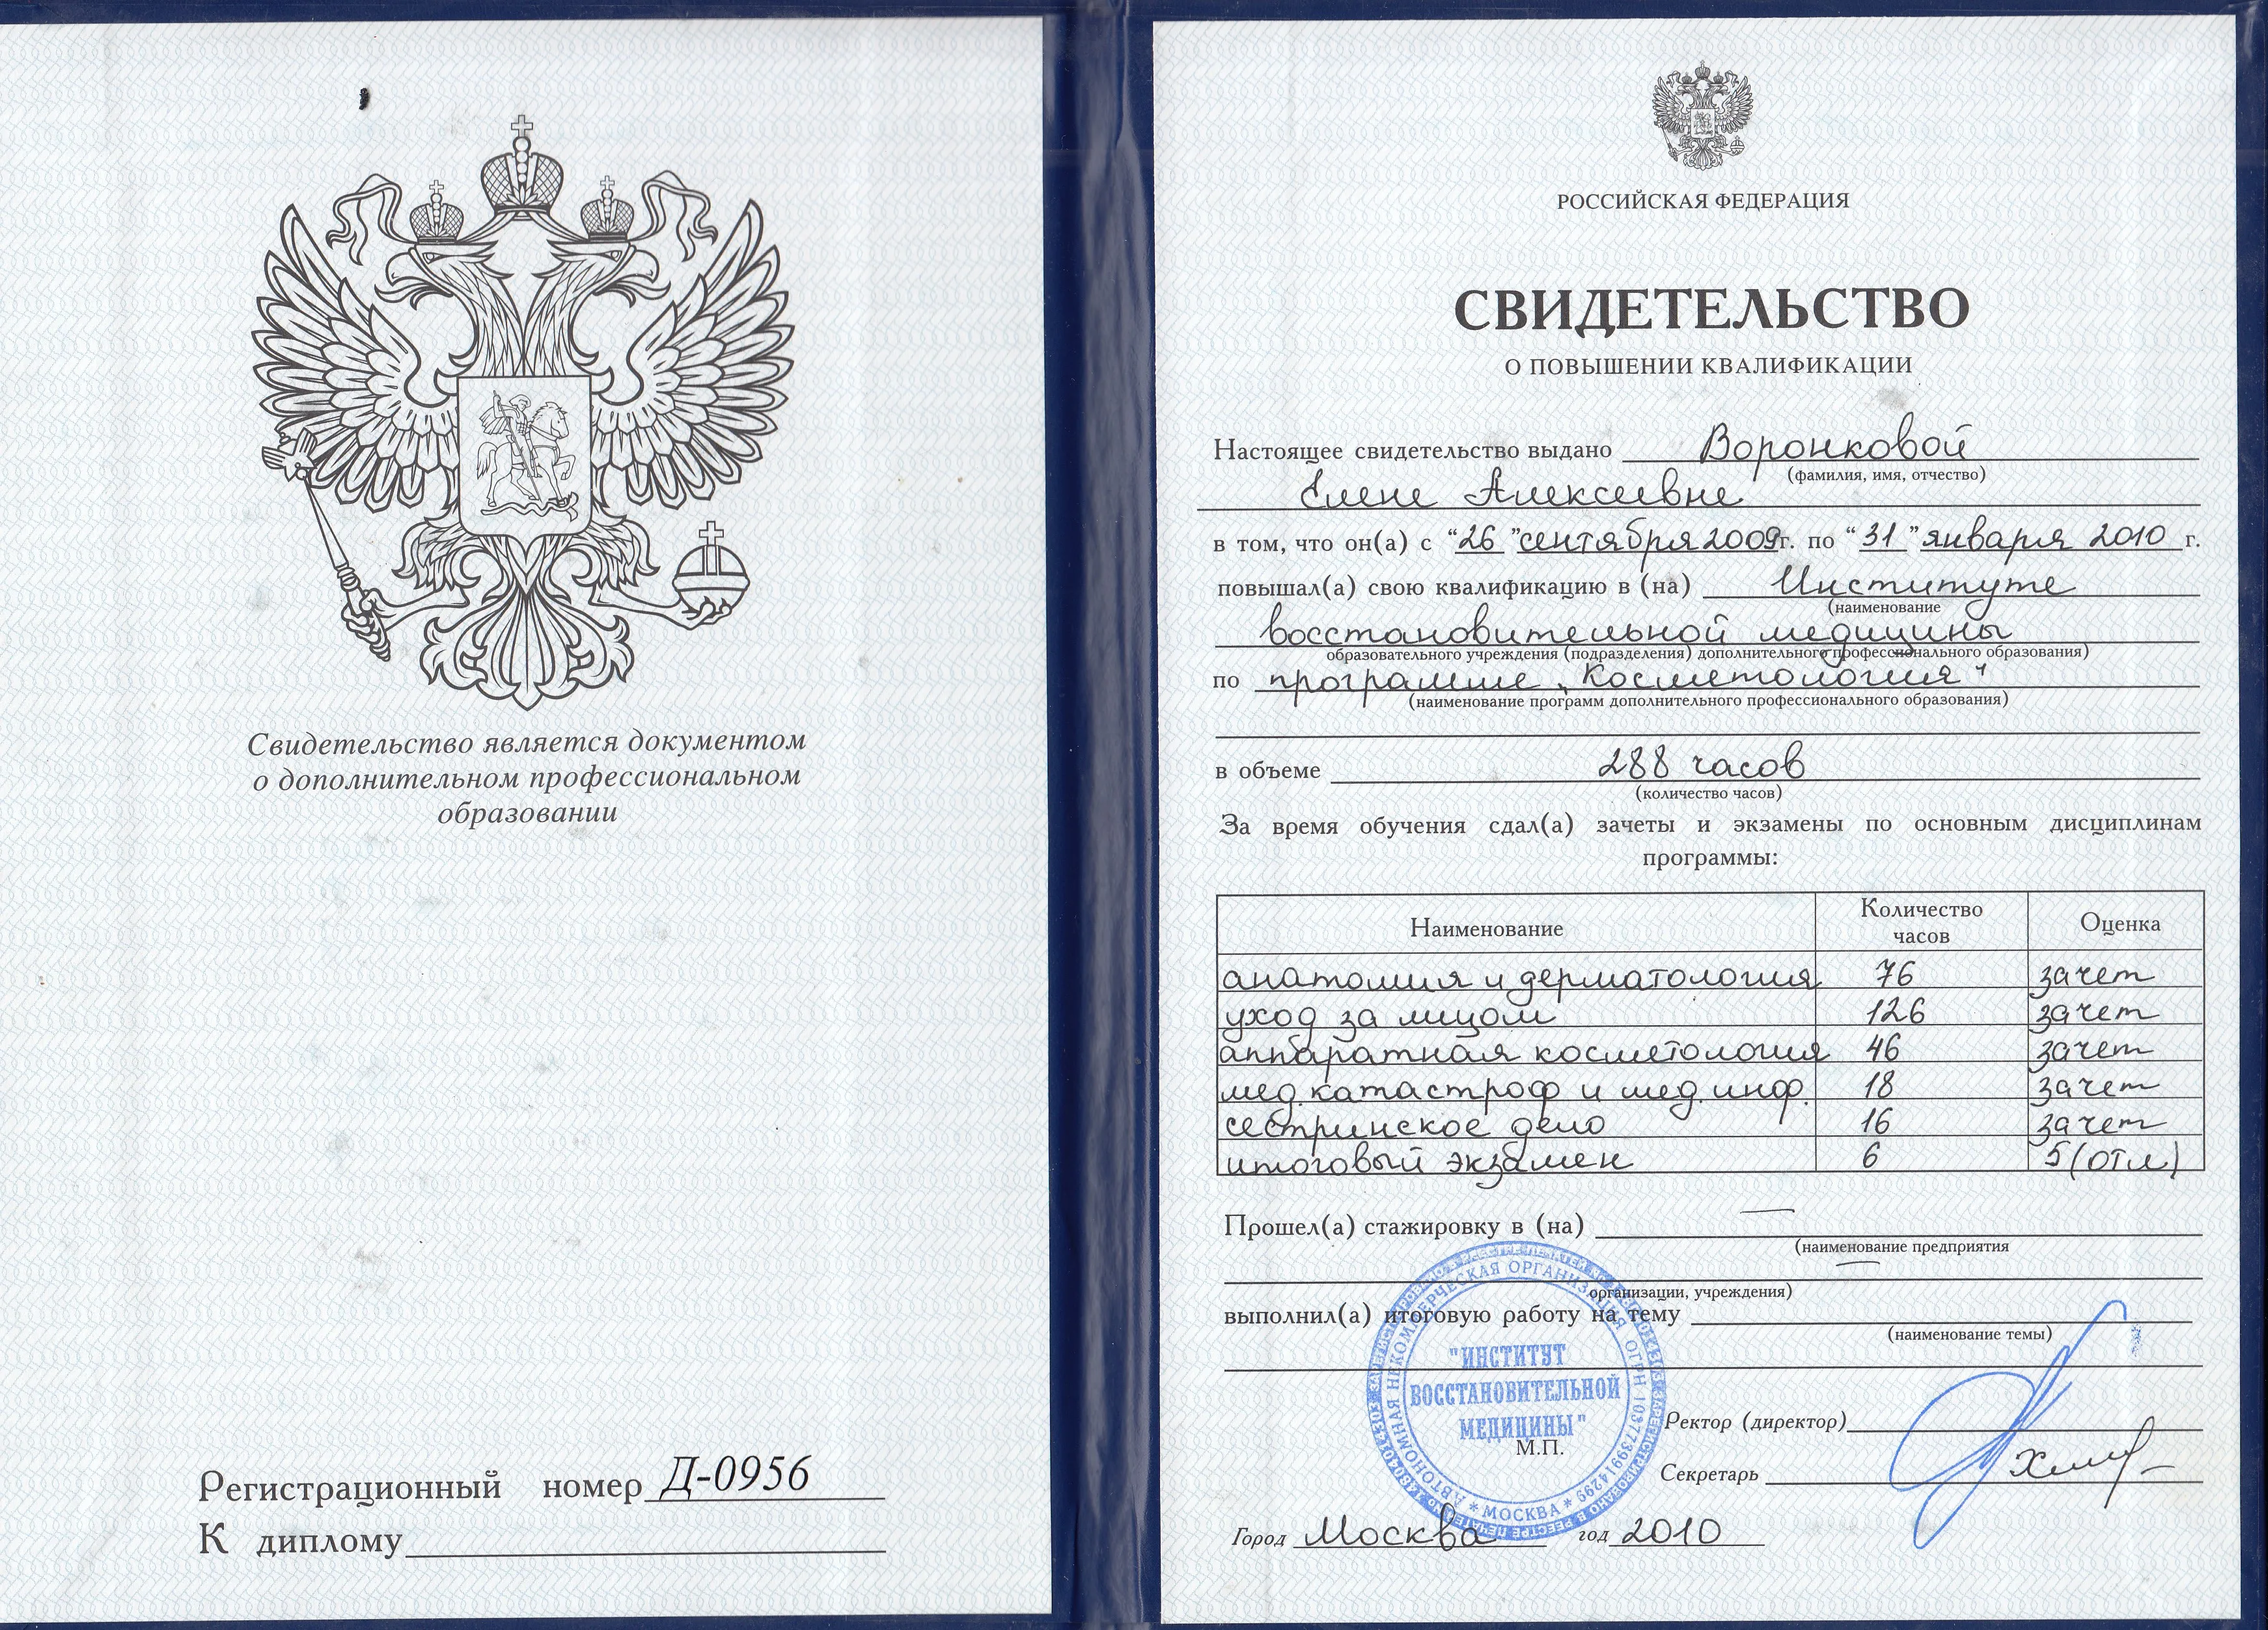 Свидетельство является документом
о дополнительном профессиональном
образовании
Регистрационный номер Д-0956
К диплому
РОССИЙСКАЯ ФЕДЕРАЦИЯ
СВИДЕТЕЛЬСТВО
О ПОВЫШЕНИИ КВАЛИФИКАЦИИ
Настоящее свидетельство выдано Воронковой
(фамилия, имя, отчество)
Елене Алексеевне
в том, что он(а) с "26" сентября 2009г. по "31" января 2010 г.
повышал(а) свою квалификацию в (на) Институте
(наименование
восстановительной медицины
образовательного учреждения (подразделения) дополнительного профессионального образования)
по программе „Косметология"
(наименование программ дополнительного профессионального образования)
в объеме 288 часов
(количество часов)
За время обучения сдал(а) зачеты и экзамены по основным дисциплинам
программы:
Наименование Количество часов Оценка
анатомия и дерматология 76 зачет
уход за лицом 126 зачет
аппаратная косметология 46 зачет
мед. катастроф и мед. инф. 18 зачет
сестринское дело 16 зачет
итоговый экзамен 6 5 (отл)
Прошел(а) стажировку в (на) —
(наименование предприятия
—
организации, учреждения)
выполнил(а) итоговую работу на тему
(наименование темы)
АВТОНОМНАЯ НЕКОММЕРЧЕСКАЯ ОРГАНИЗАЦИЯ ОГРН 1037739914299 * МОСКВА *
"ИНСТИТУТ
ВОССТАНОВИТЕЛЬНОЙ
МЕДИЦИНЫ"
М.П.
Ректор (директор)
Секретарь
Город Москва год 2010